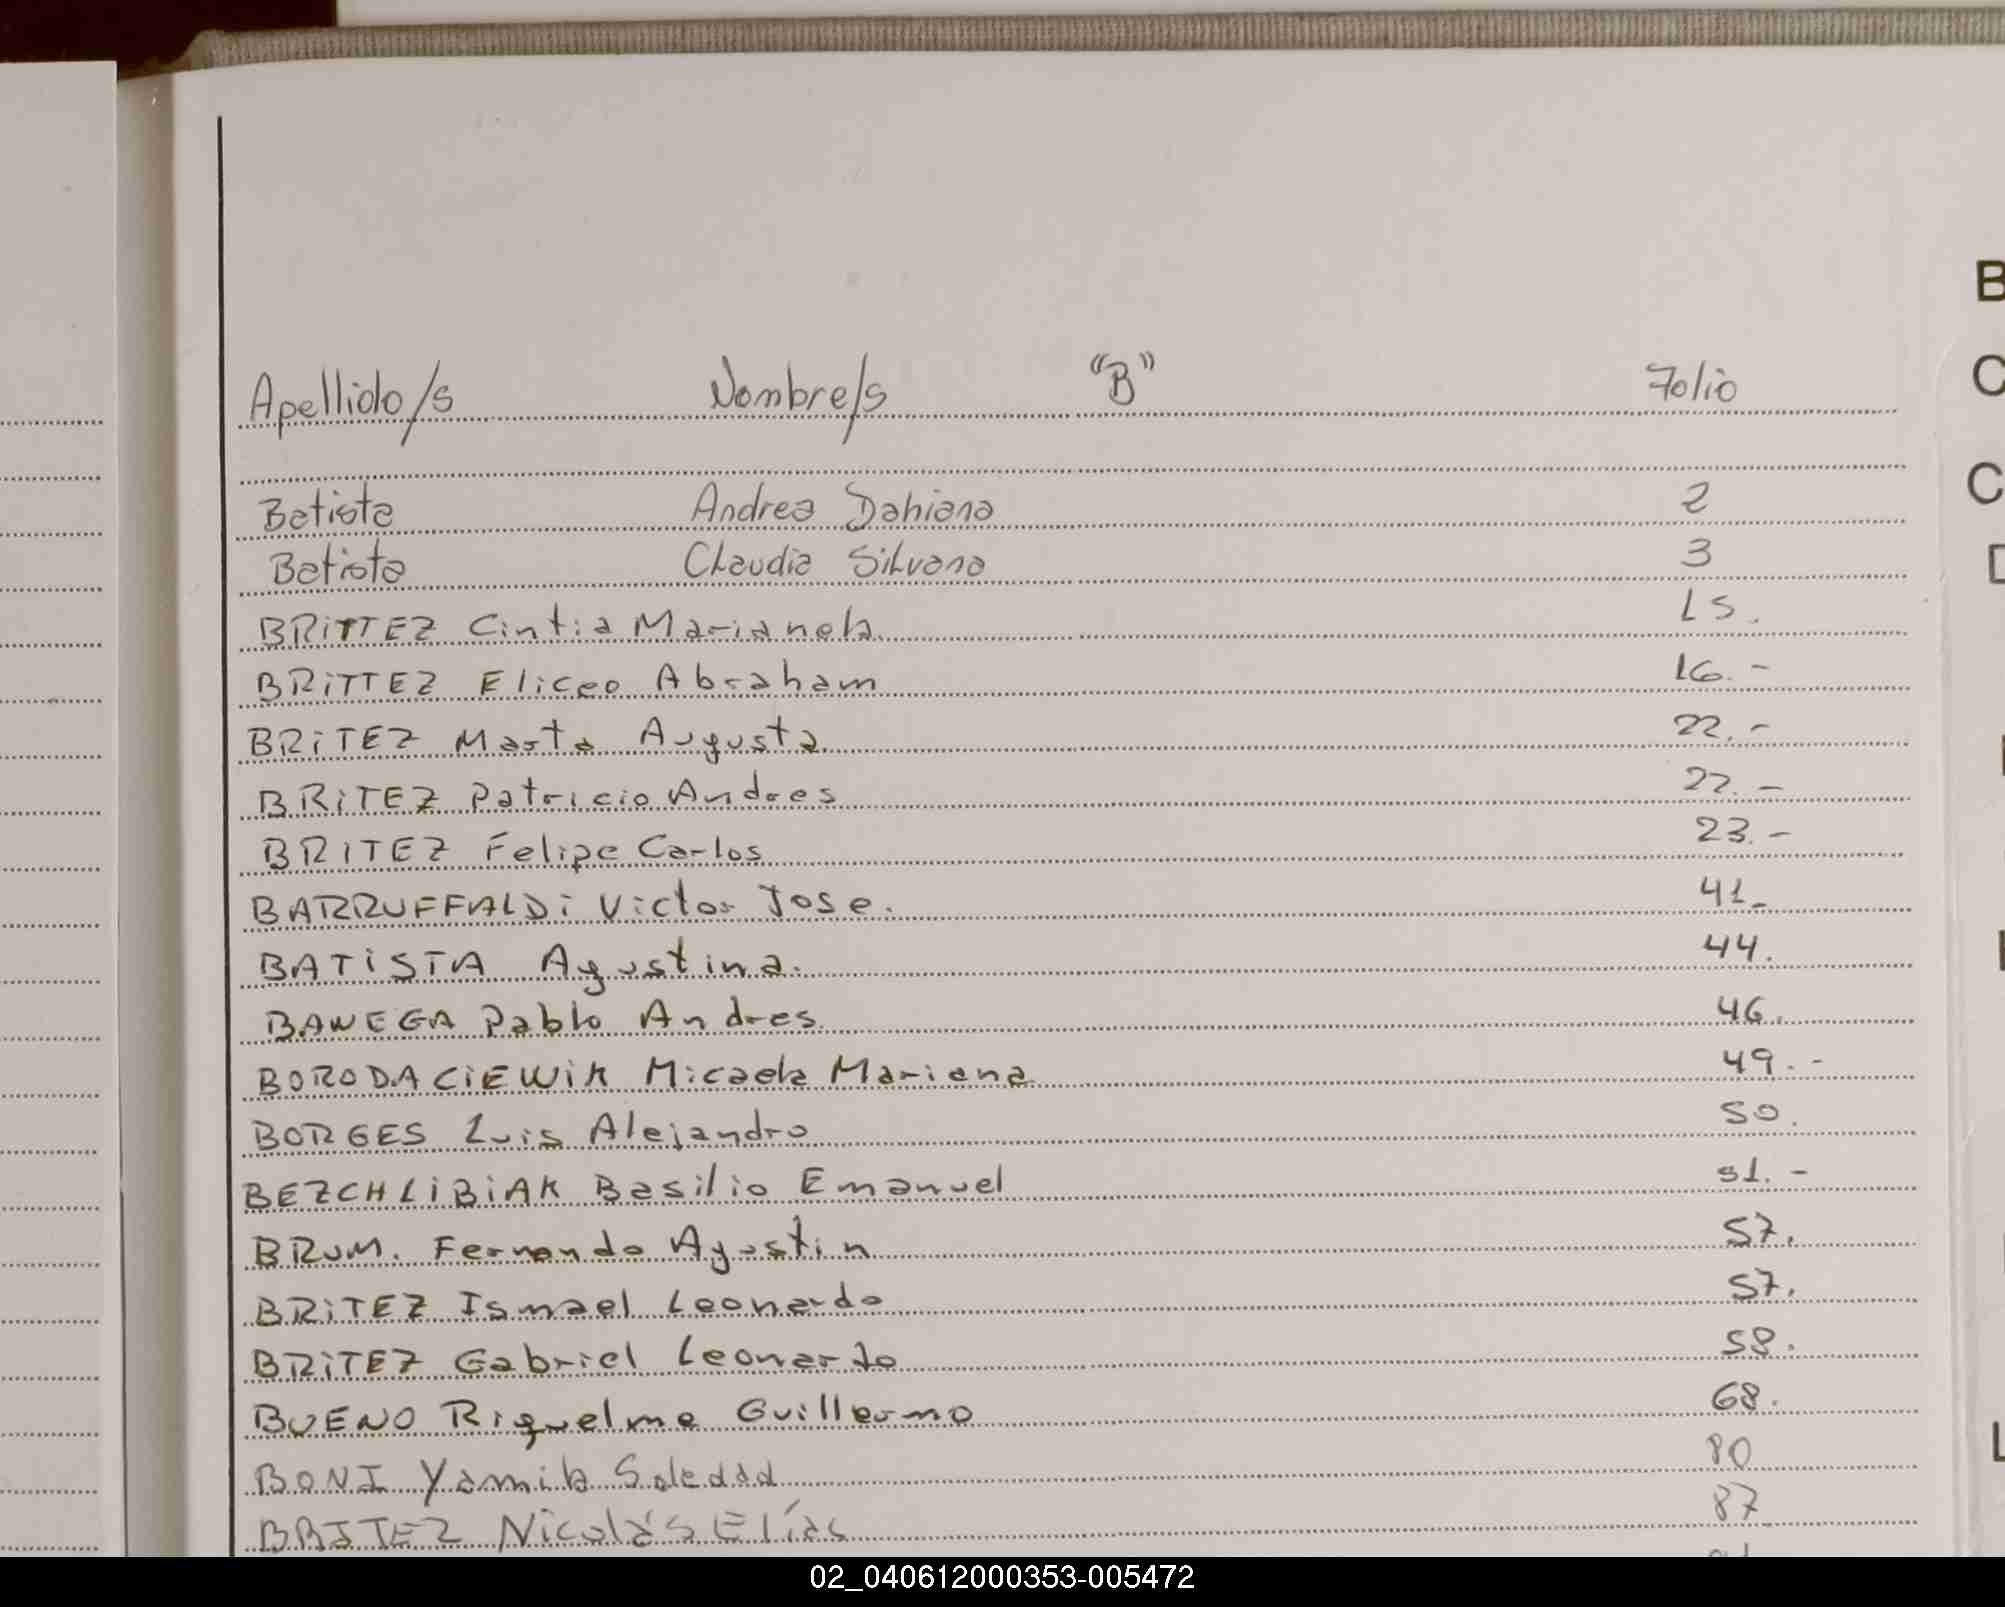 Apellido/s Nombre/s "B" Folio
Batista Andrea Dahiana 2
Batista Claudia Silvana 3
BRITTEZ Cintia Marianela 15.
BRITTEZ Eliceo Abraham 16.-
BRITEZ Marta Augusta 22.-
BRITEZ Patricio Andres 22.-
BRITEZ Felipe Carlos 23.-
BARRUFFALDI Victor Jose. 41-
BATISTA Agustina. 44.
BANEGA Pablo Andres 46.
BORODACIEWIK Micaela Mariana 49.-
BORGES Luis Alejandro 50.
BEZCHLIBIAK Basilio Emanuel 51.-
BRUM. Fernando Agustin 57.
BRITEZ Ismael Leonardo 57.
BRITEZ Gabriel Leonardo 58.
BUENO Riquelme Guillermo 68.
BONI Yamila Soledad 80
BRITEZ Nicolás Elías 87
B
C
C
D
L
02_040612000353-005472